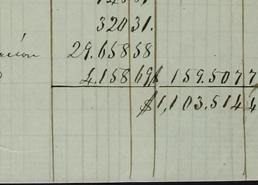 32031.
29.658 58
4.158 69 $ 159.507 7
$ 1,103.514 4